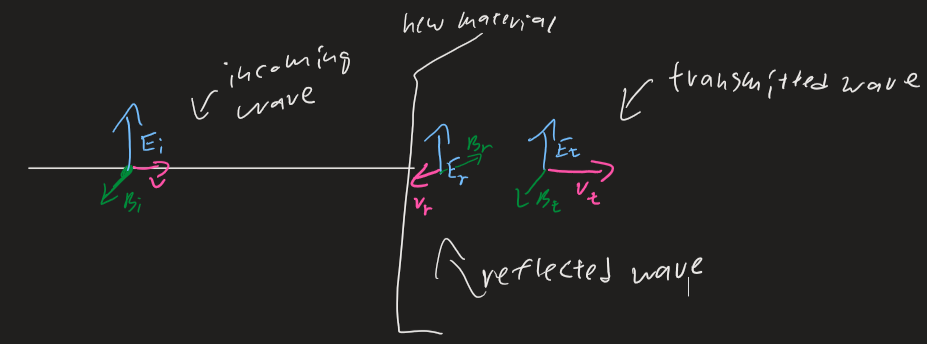 new material
incoming
wave
transmitted wave
E_i
B_i
v
B_r
E_r
v_r
E_t
B_t
v_t
reflected wave